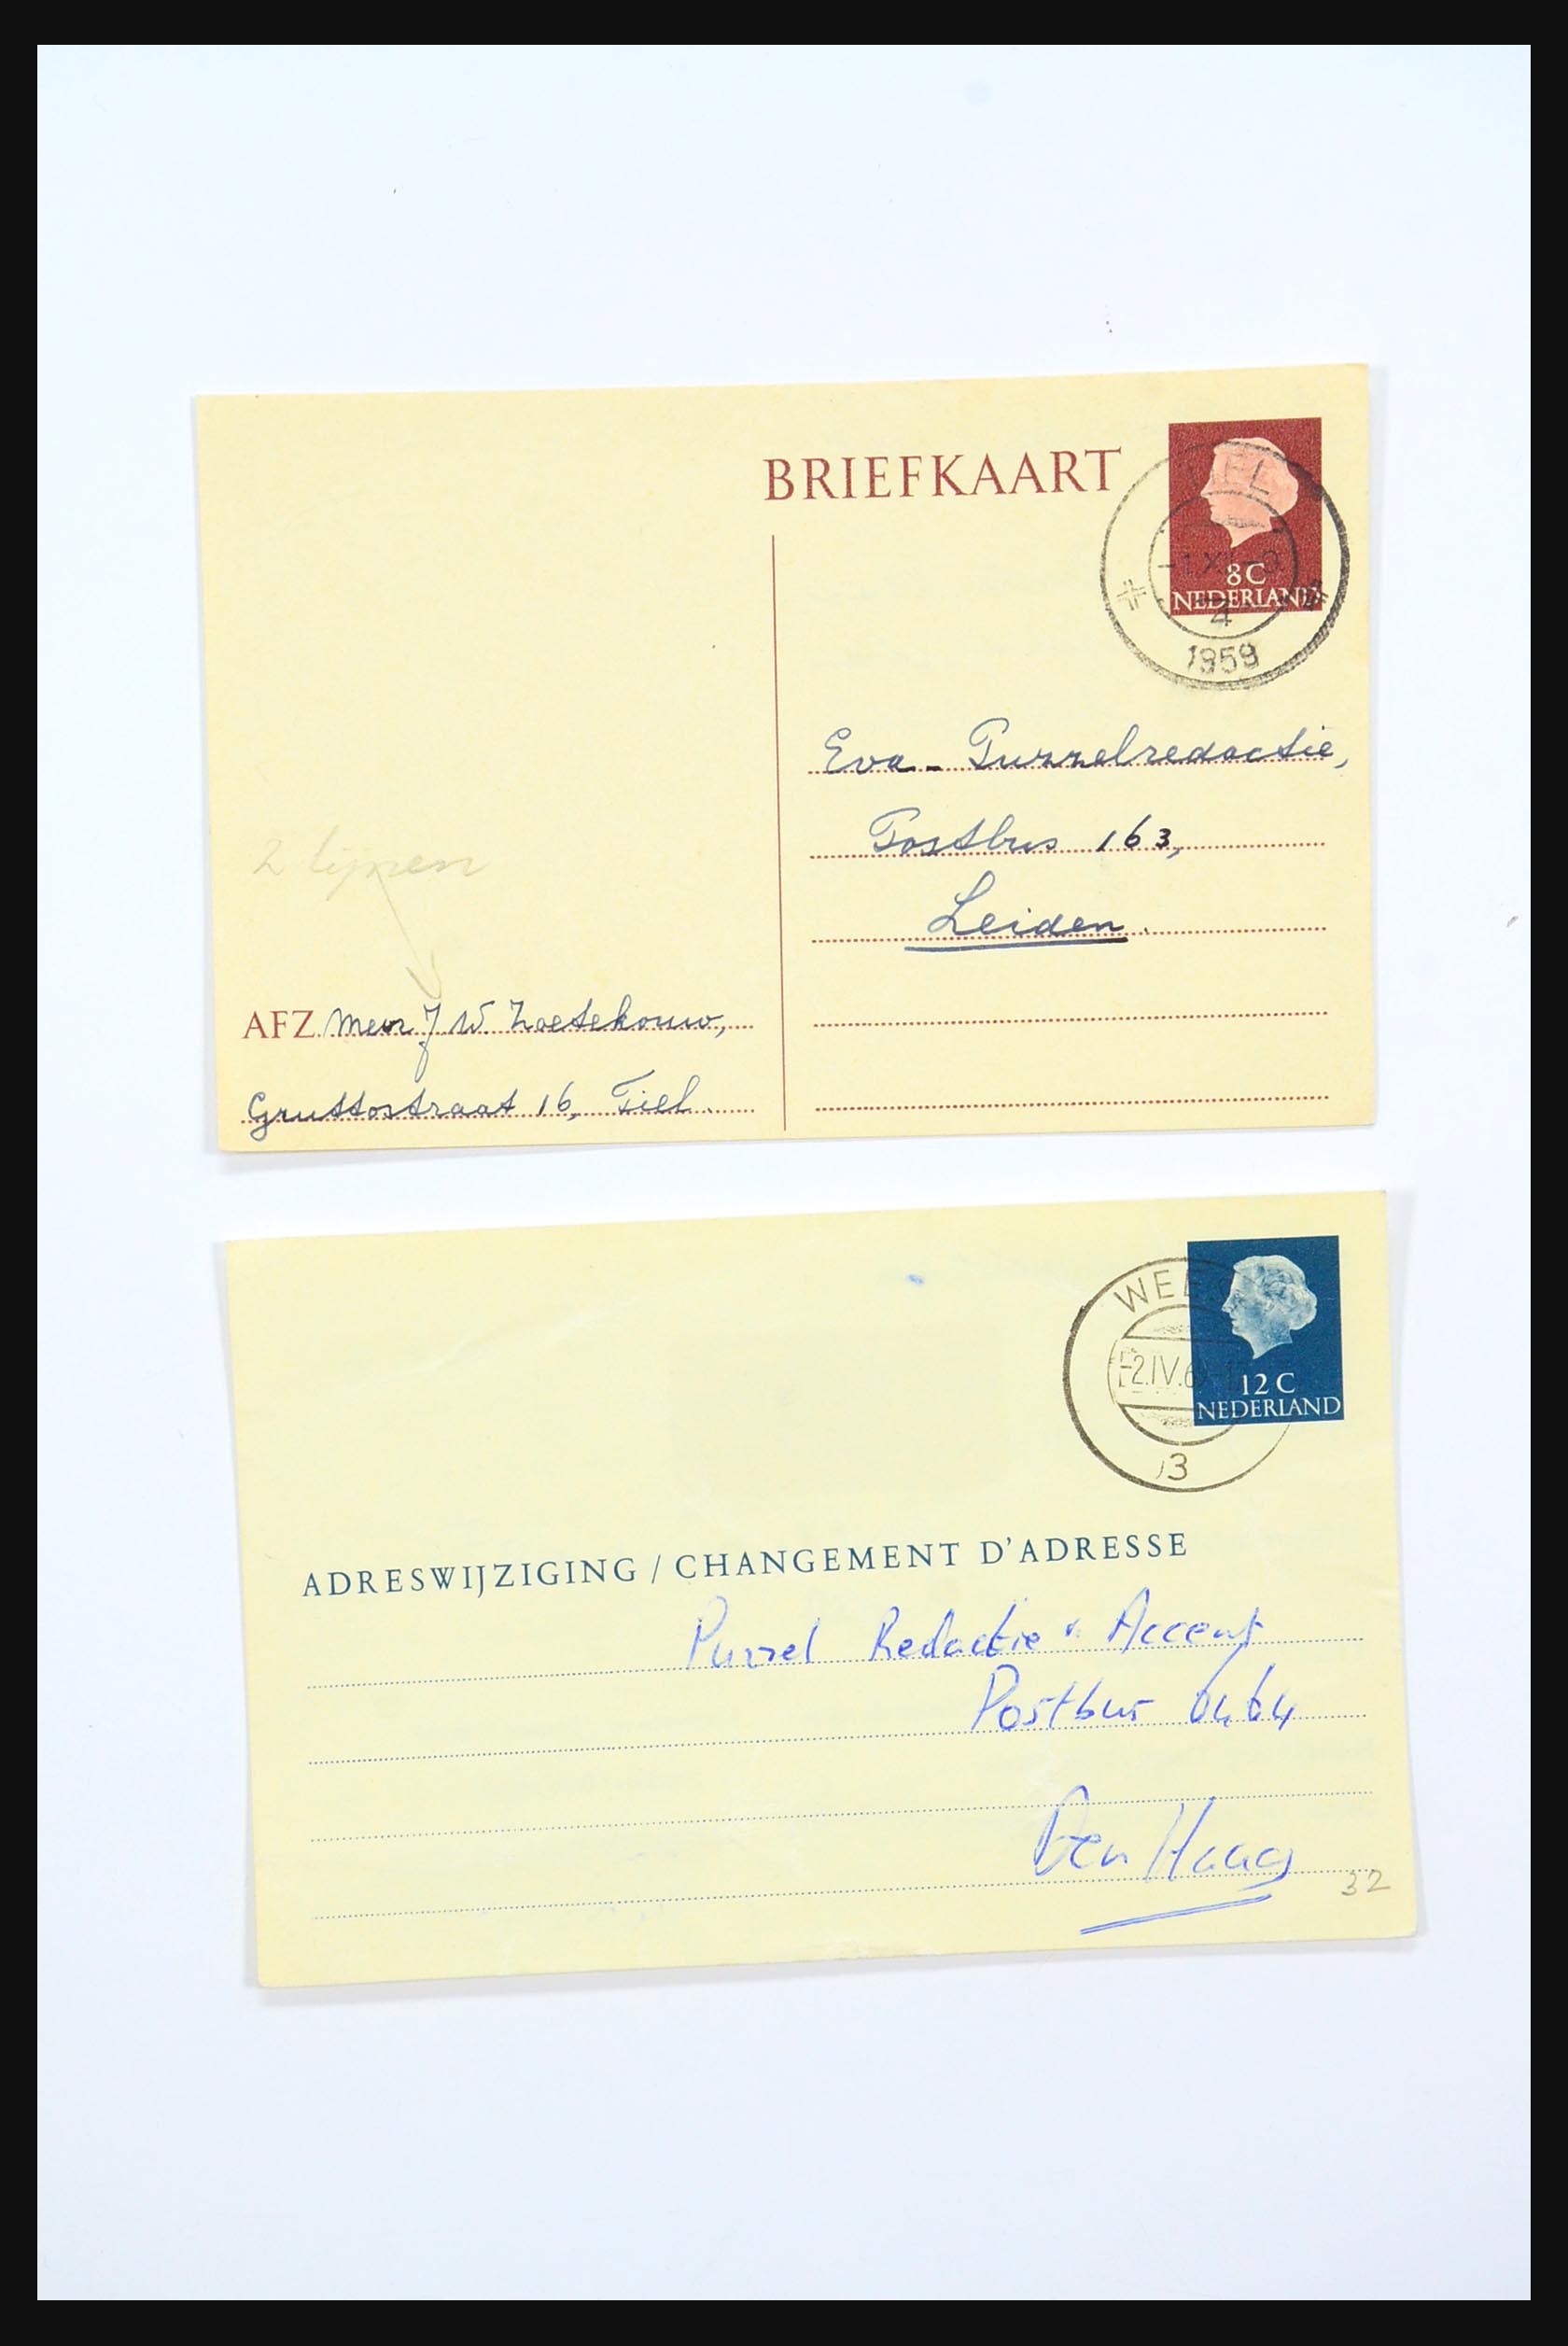 BRIEFKAART
8 C
NEDERLAND
4
1959
Eva - Puzzelredactie,
Postbus 163,
Leiden.
2 lijnen
AFZ. Mevr J W Zoetekouw,
Gruttostraat 16, Tiel.
12 C
NEDERLAND
-2.IV.6
13
ADRESWIJZIGING / CHANGEMENT D'ADRESSE
Puzzel Redactie " Accent
Postbus 6464
Den Haag
32